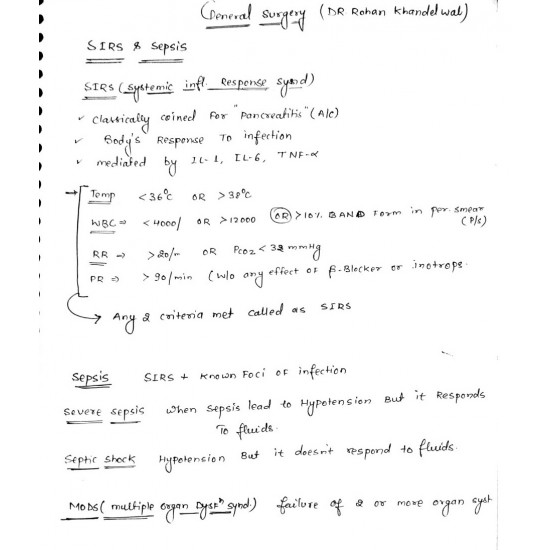 General Surgery (DR Rohan Khandelwal)
SIRS & Sepsis
SIRS (systemic infl. Response synd)
✓ Classically coined For "Pancreatitis" (A/c)
✓ Body's Response To infection
✓ mediated by IL-1, IL-6, TNF-α
→ Temp <36°C OR >38°C
WBC ⇒ <4000/ OR >12000 (OR) >10% BAND Form in per. smear (P/s)
RR ⇒ >20/m OR PCO2 < 32 mmHg
PR ⇒ >90/min (w/o any effect of β-Blocker or inotrops.
→ Any 2 criteria met called as SIRS
Sepsis SIRS + Known Foci of infection
Severe sepsis when sepsis lead to Hypotension But it Responds
To fluids.
Septic shock Hypotension But it doesnt respond to fluids.
MODS (multiple organ Dysfⁿ synd.) failure of 2 or more organ syst